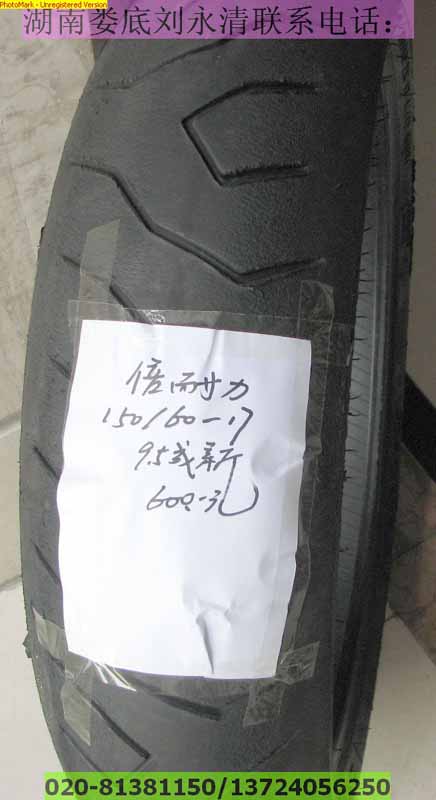 PhotoMark - Unregistered Version
湖南娄底刘永清联系电话:
倍耐力
150/60-17
95成新
600
020-81381150/13724056250